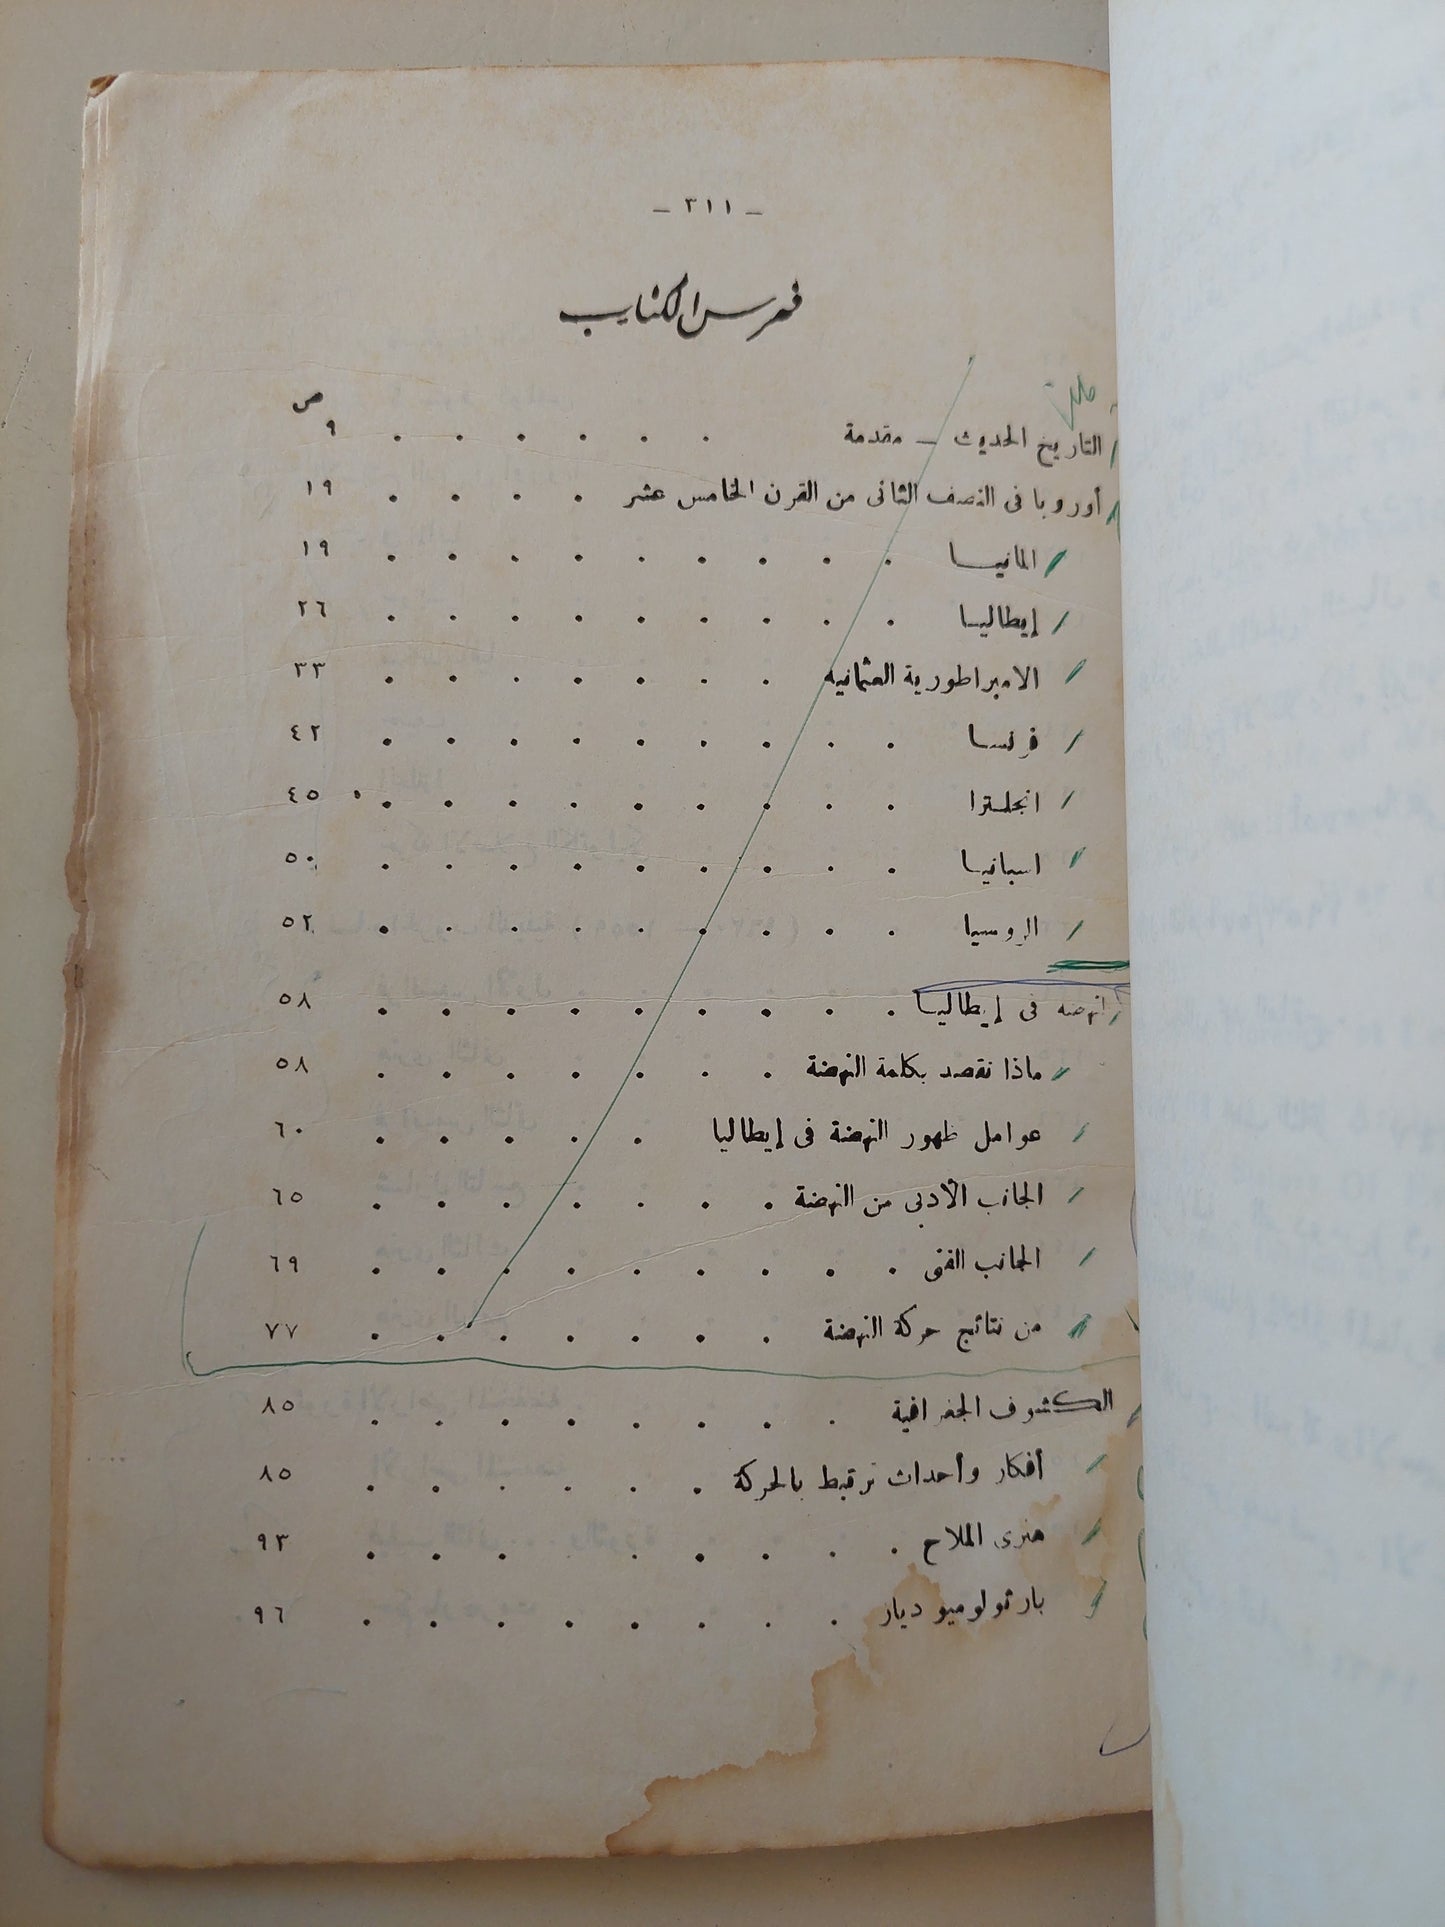 - ٣١١ -
فهرس الكتاب
ص
التاريخ الحديث - مقدمة . . . . . . ٩
أوروبا فى النصف الثانى من القرن الخامس عشر . . . . ١٩
المانيـــا . . . . . . . . . ١٩
إيطاليـا . . . . . . . . . ٢٦
الامبراطورية العثمانيه . . . . . . . ٣٣
فرنسـا . . . . . . . . . ٤٢
انجلـترا . . . . . . . . . . ٤٥
اسبانيـا . . . . . . . . . ٥٠
الروسيا . . . . . . . . . ٥٢
النهضه فى إيطاليـا . . . . . . . . . ٥٨
ماذا نقصد بكلمة النهضة . . . . . . . ٥٨
عوامل ظهور النهضة فى إيطاليا . . . . . ٦٠
الجانب الأدبى من النهضة . . . . . . . ٦٥
الجانب الفنى . . . . . . . . . ٦٩
من نتائج حركة النهضة . . . . . . . ٧٧
الكشوف الجغرافية . . . . . . . . ٨٥
أفكار وأحداث ترتبط بالحركة . . . . . . ٨٥
هنرى الملاح . . . . . . . . . ٩٣
بارثولوميو دياز . . . . . . . . ٩٦